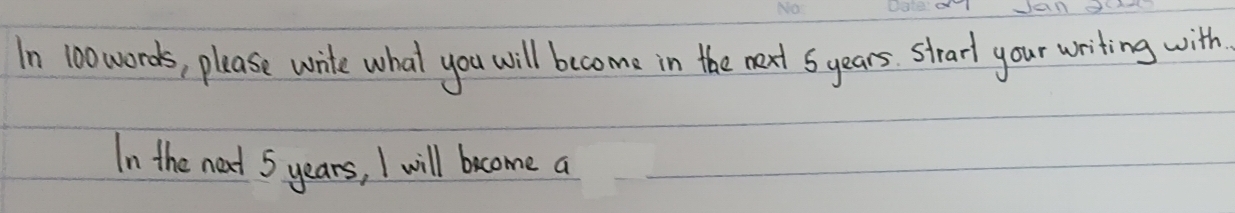 No: Date: Jan
In 100 words, please write what you will become in the next 5 years. Strart your writing with..
In the next 5 years, I will become a